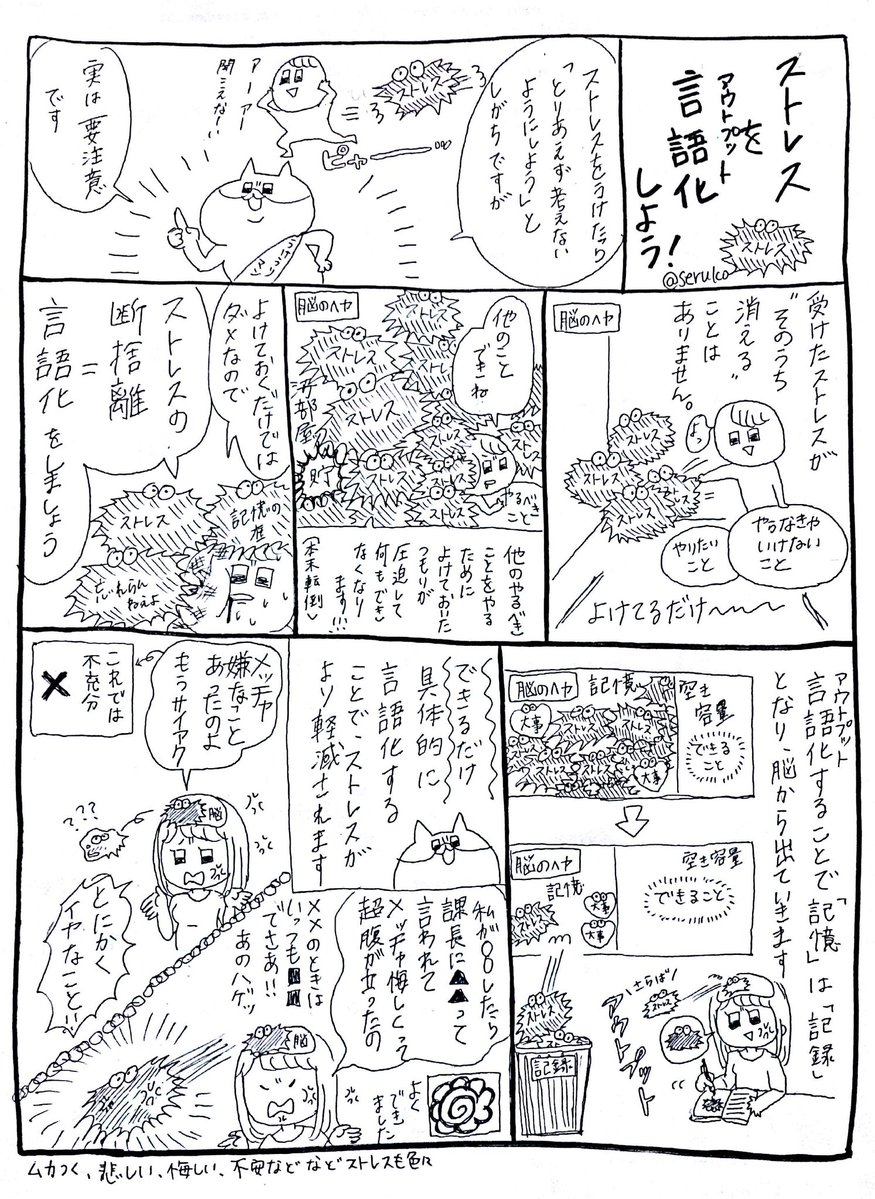 ストレス
を
アウトプット
言語化
しよう！
ストレス
@seruko
ストレスをうけたら
「とりあえず考えない
ようにしよう」と
しがちですが
ストレス
アーアー
聞こえなーい
ピャーー
実は要注意
です
受けたストレスが
"そのうち
消える"
ことは
ありません。
脳のヘヤ
よっ
ストレス
ストレス
ストレス
ストレス
やらなきゃ
いけない
こと
やりたい
こと
よけてるだけ〜〜〜
脳のヘヤ
他のこと
できね
ストレス
ストレス
ストレス
ストレス
ストレス
ストレス
汚部屋
貯
やるべき
こと
他のやるべき
ことをやる
ために
よけておいた
つもりが
圧迫して
何もでき
なくなり
ます!!!
(本末転倒)
よけておくだけでは
ダメなので
ストレスの
断捨離
=
言語化をしましょう
ストレス
記憶の
本
アウトプット
言語化することで「記憶」は「記録」
となり、脳から出ていきます
脳のヘヤ
記憶
空き
容量
できる
こと
大事
大事
ストレス
ストレス
脳のヘヤ
記憶
空き容量
できること
大事
大事
ストレス
ストレス
記録
さらば！
ストレス
アウトプット
できるだけ
具体的に
言語化する
ことで、ストレスが
より軽減されます
メッチャ
嫌なこと
あったのよ
もうサイアク
これでは
不充分
×
脳
???
とにかく
イヤなこと!!
私が〇〇したら
課長に▲▲って
言われて
メッチャ悔しくって
超腹が立ったの
××のときは
いっつも■■
でさあ!!
あのハゲッ
脳
よく
できました
ムカつく、悲しい、悔しい、不安などなどストレスも色々